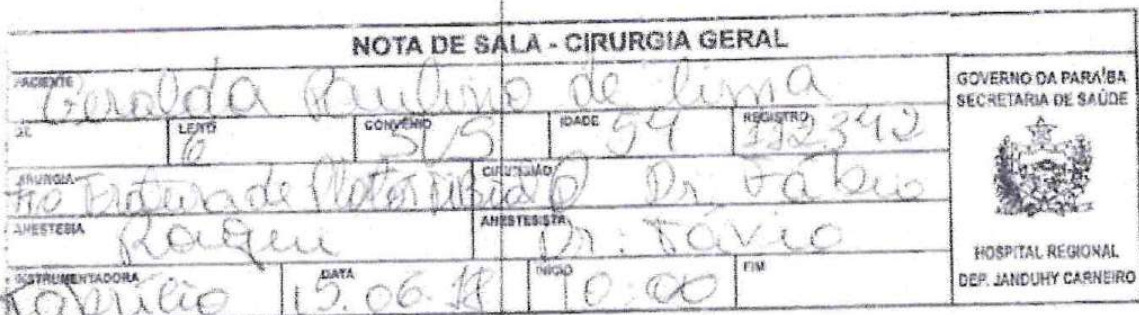 NOTA DE SALA - CIRURGIA GERAL
PACIENTE
Geralda Paulino de Lima
LEITO 6 CONVÊNIO IDADE 54 REGISTRO 112342
CIRURGIÃO Dr. Fábio
ANESTESIA Raqui ANESTESISTA Dr: Flávio
INSTRUMENTADORA DATA 15.06.18 INÍCIO 10:00 FIM
GOVERNO DA PARAÍBA
SECRETARIA DE SAÚDE
HOSPITAL REGIONAL
DEP. JANDUHY CARNEIRO